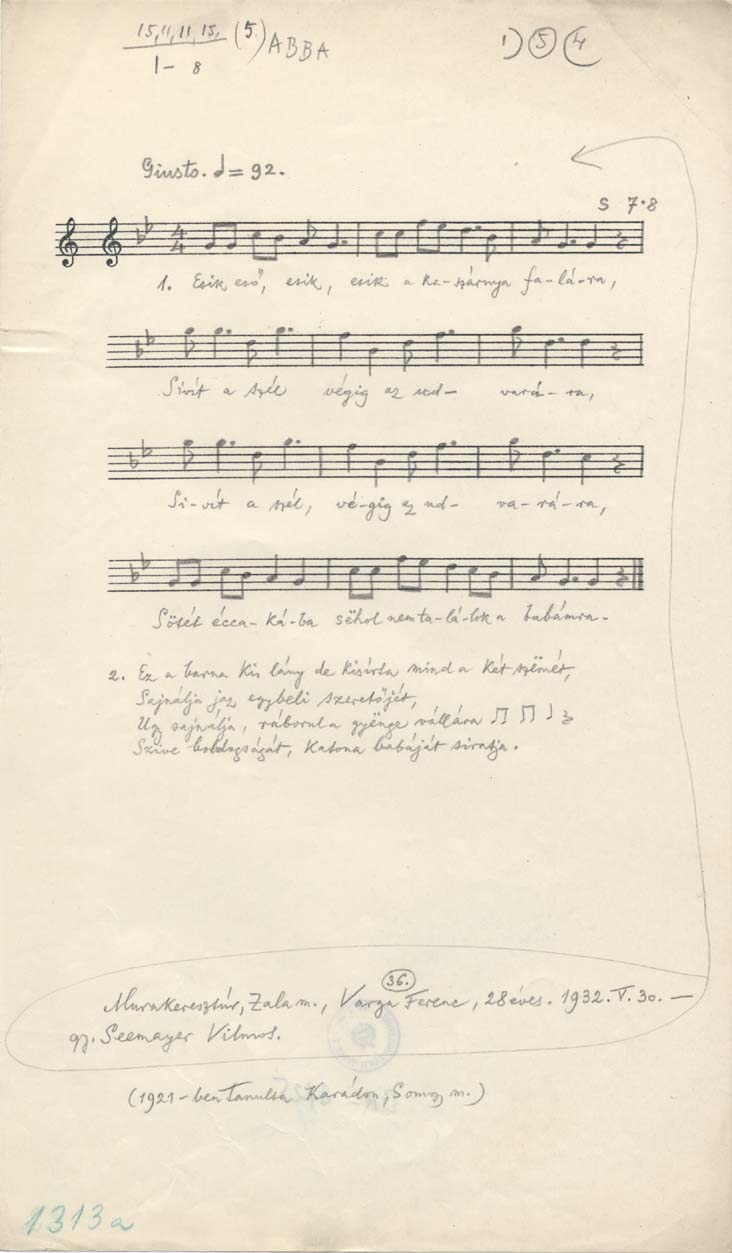 15, 11, 11, 15, (5) ABBA
1- 8
1) 5 4
Giusto. ♩= 92.
S 7·8
4
4
1. Esik eső, esik, esik a ka-szárnya fa-lá-ra,
Sivít a szél végig az ud- vará-ra,
Si-vít a szél, vé-gig az ud- va-rá-ra,
Sötét écca-ká-ba sëhol nem ta-lá-lok a babámra.
2. Ez a barna kis lány de kisírta mind a két szëmét,
Sajnálja jaz egybeli szeretőjét,
Ug sajnálja, ráborul a gyënge vállára
Szive boldogságát, katona babáját siratja.
36.
Murakeresztúr, Zala m., Varga Ferenc, 28 éves. 1932. V. 30. —
gy. Seemayer Vilmos.
(1921-ben tanulta Karádon, Somogy m.)
1313a